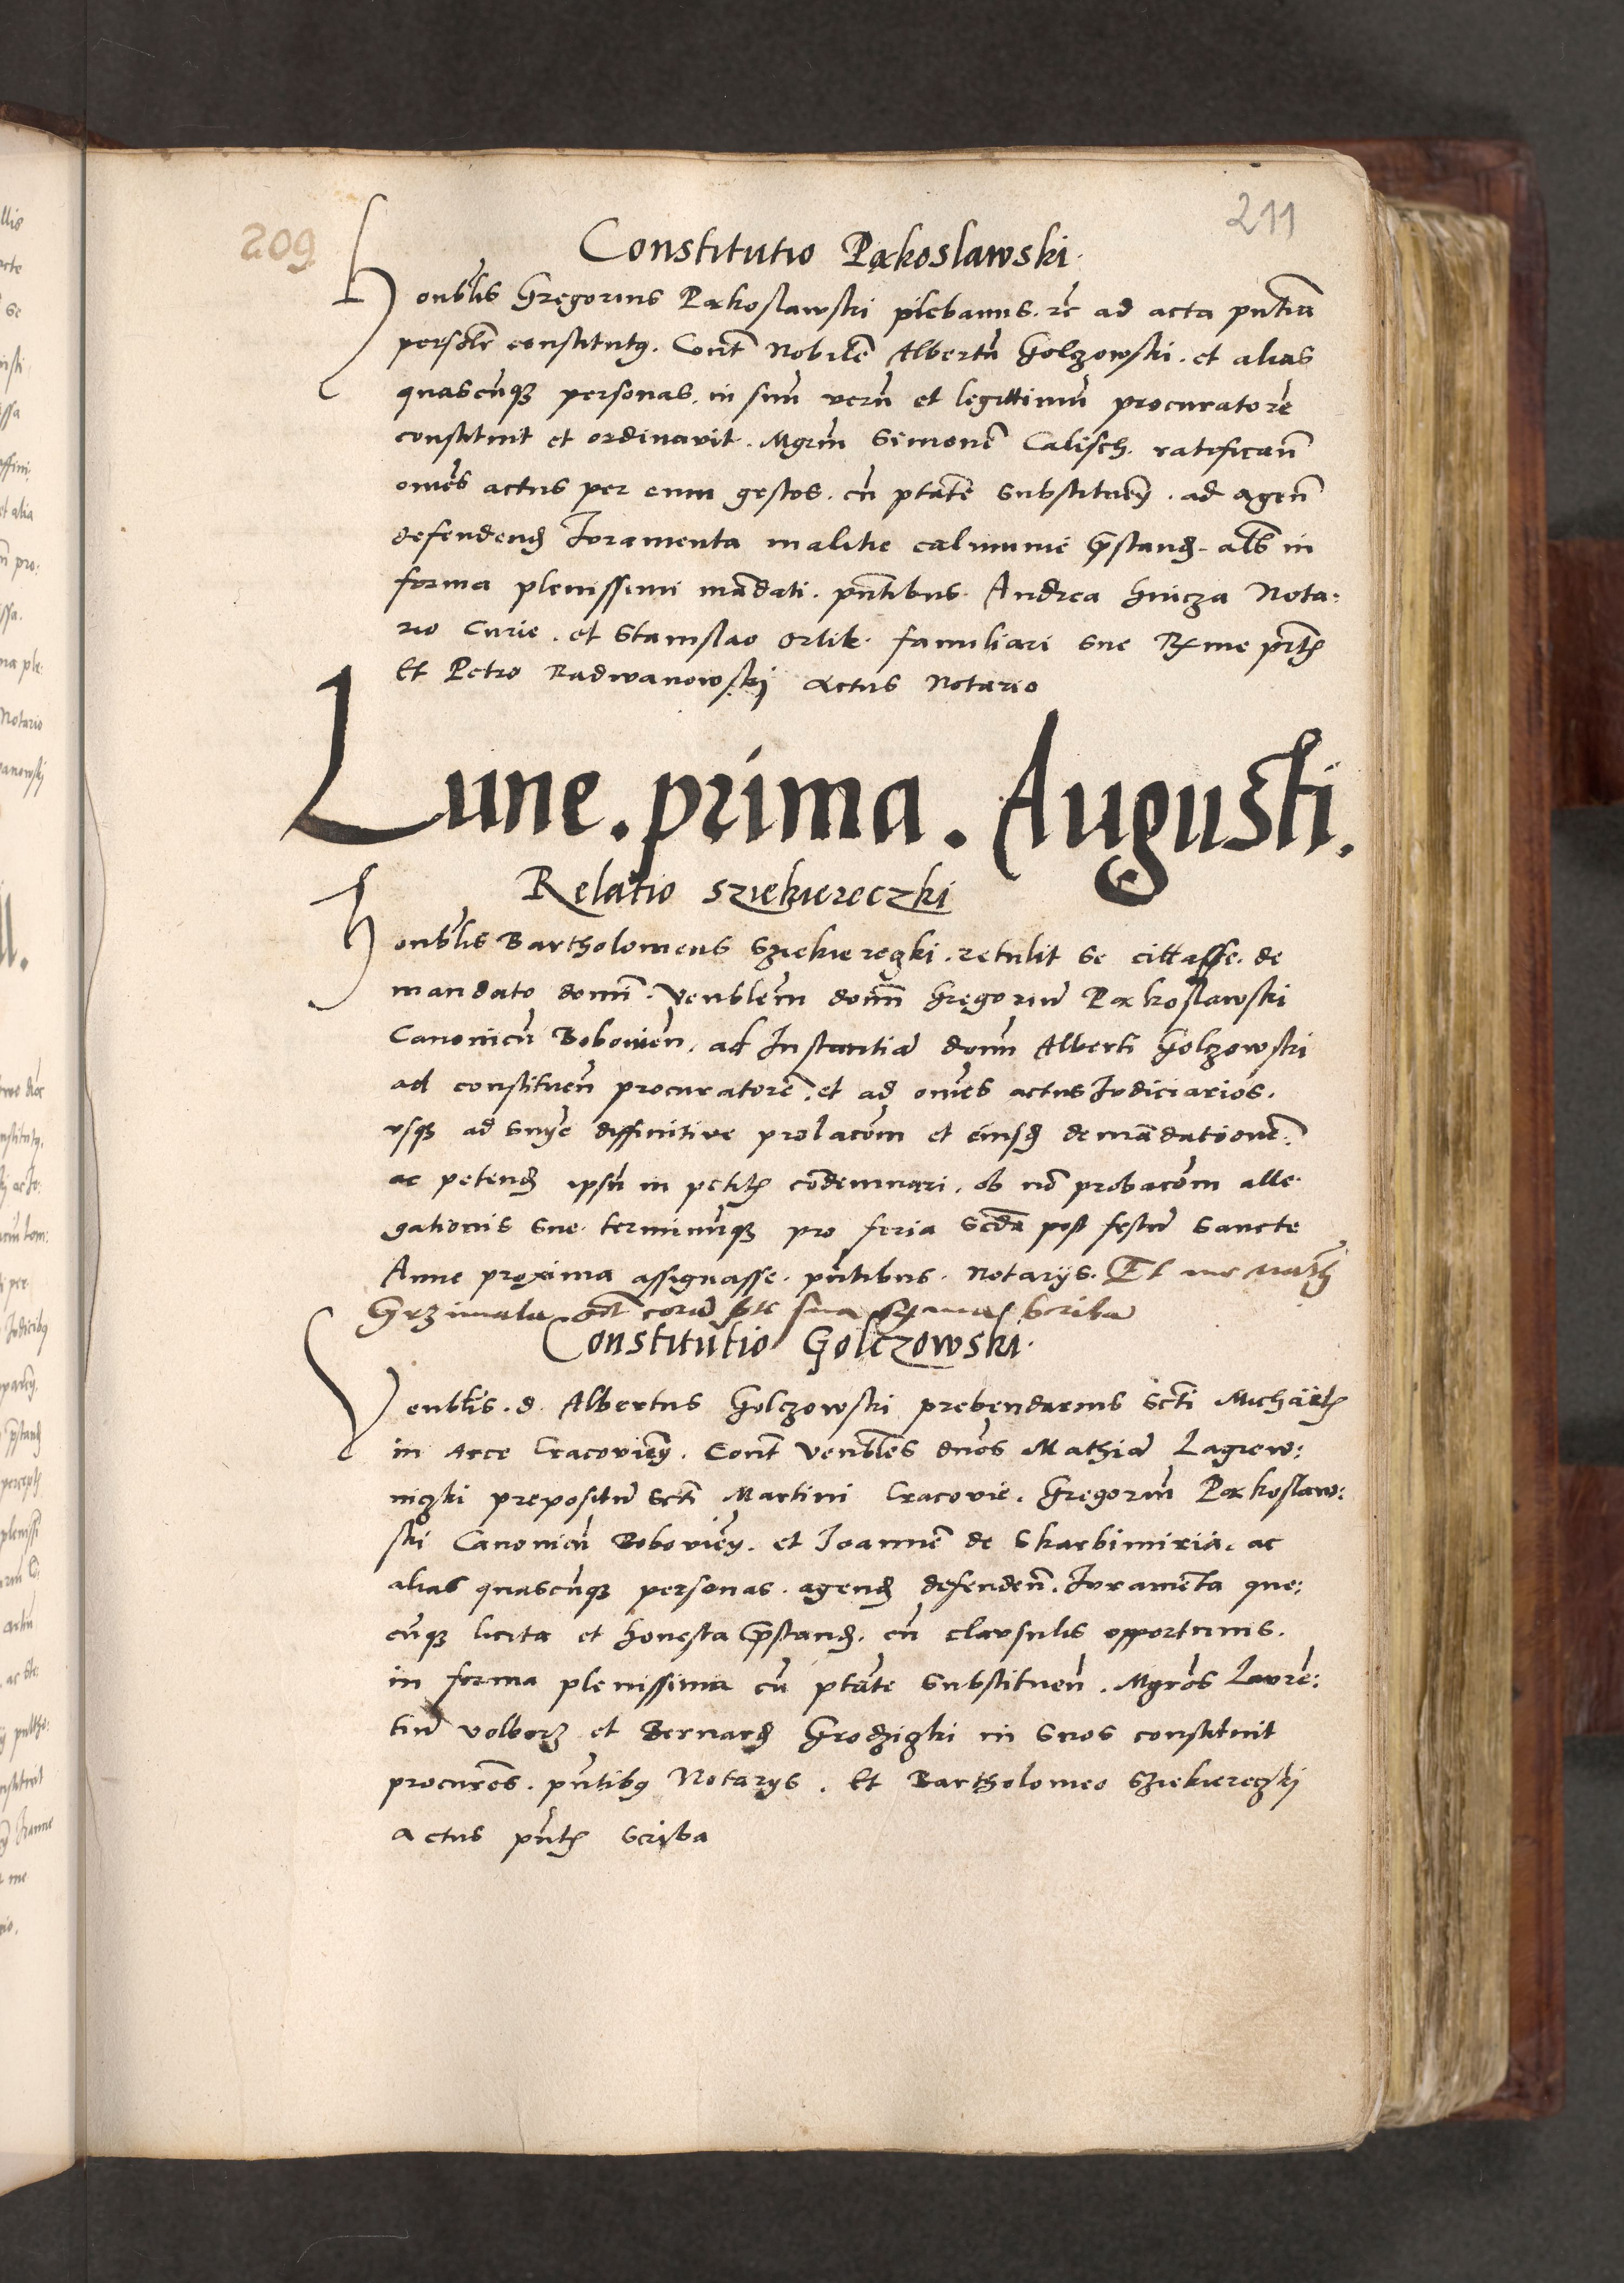 209
211
Constitutio Pakoslawski.
Honblis Gregorius Pakoslawski plebanus. rc ad acta pntia
persolr constitutq. Cont Nobile Albertu Golczowski. et alias
quascuqz personas. in suu veru et legittimu procuratore
constituit et ordinavit. Mgrm Simone Calisch. ratifican
omes actus per eum gestos. cu ptate substituen. ad agen
defendend Juramenta malitie calumnie prestand. als in
forma plenissimi madati. pntibus. Andrea Hincza Nota:
rio Curie. et Stanislao Orlik. familiari sue Rme pnt
Et Petro Radwanowskj Actus Notario
Lune. prima. Augusti.
Relatio Sziekiereczki
Honblis Bartholomeus Sziekiereczki. retulit se cittasse. de
mandato domi. venblem domi Gregoriu Pakoslawski
Canonicu Bobovien. ad Instantia domi Alberti Golczowski
ad constituen procuratore. et ad omes actus Judiciarios.
vsqz ad snye diffinitive prolacom et eiusd demadatione.
ac petend ipsu in petit codemnari. ob no probacom alle
gationis sue terminuqz pro feria scda post festu Sancte
Anne proxima assignasse. pntibus. Notarys. Et me
Grzimala
Constitutio Golczowski.
Venblis. d. Albertus Golczowski prebendarius scti Michaelis
in Arce Cracovien. Cont venbles dnos Mathia Lagiew:
niczki prepositu scti Martini Cracovie. Gregoriu Pakoslaw:
ski Canonicu Bobovien. et Joanne de Skarbimiria. ac
alias quascuqz personas. agend defenden. Juramenta que:
cuqz licita et honesta prestand. cu clausulis opportunis.
in forma plenissima cu ptate substituen. Mgros Laure:
tiu Volborz et Bernard Grodziczki in suos constituit
procures. pntibq Notarys. Et Bartholomeo Sziekiereczkj
Actus pnt scriba